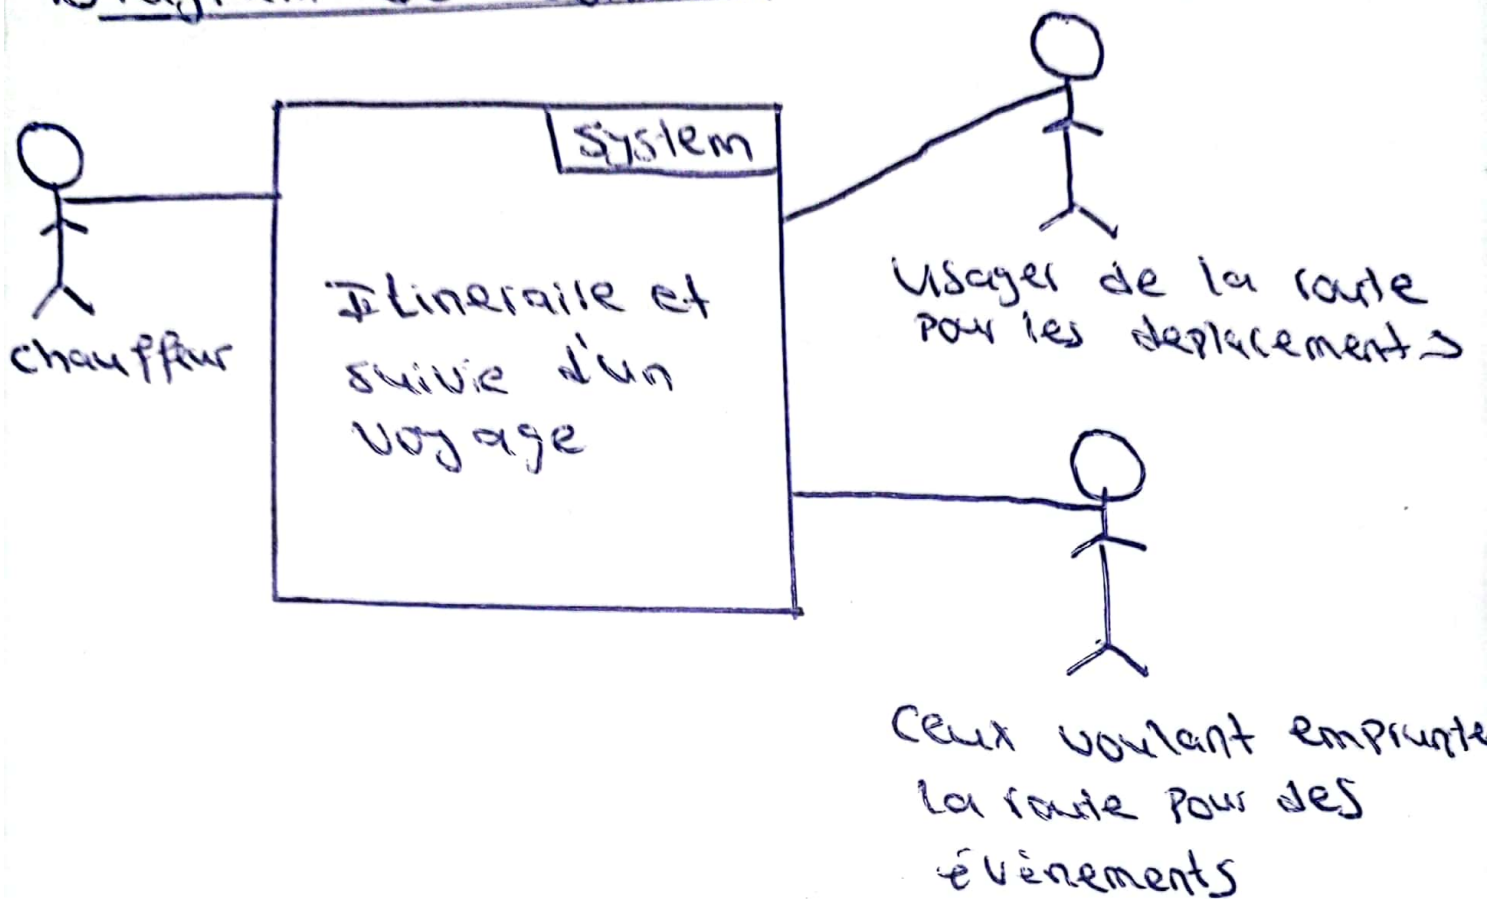 System
chauffeur
Itineraire et
suivie d'un
voyage
Usager de la route
pour les deplacements
Ceux voulant emprunte
la route pour des
évènements